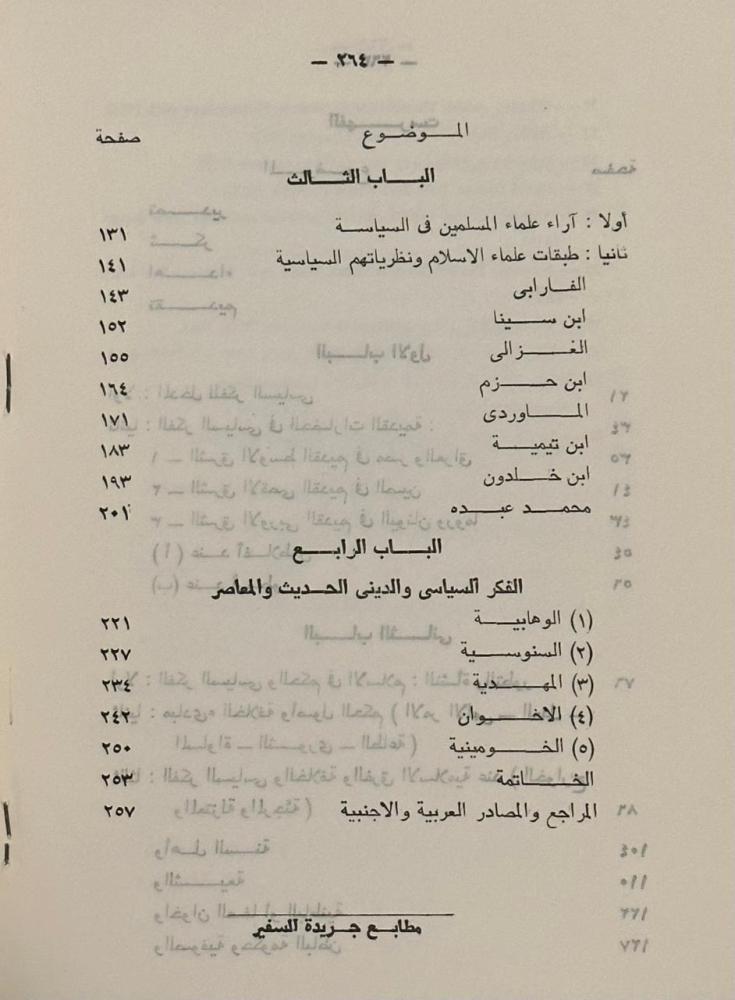 — ٢٦٤ —
الموضوع صفحة
الباب الثالث
أولا : آراء علماء المسلمين فى السياسة ١٣١
ثانيا : طبقات علماء الاسلام ونظرياتهم السياسية ١٤١
الفارابى ١٤٣
ابن سينا ١٥٢
الغزالى ١٥٥
ابن حزم ١٦٤
الماوردى ١٧١
ابن تيمية ١٨٣
ابن خلدون ١٩٣
محمد عبده ٢٠١
الباب الرابع
الفكر السياسى والدينى الحديث والمعاصر
(١) الوهابية ٢٢١
(٢) السنوسية ٢٢٧
(٣) المهدية ٢٣٤
(٤) الاخوان ٢٤٢
(٥) الخومينية ٢٥٠
الخاتمة ٢٥٣
المراجع والمصادر العربية والاجنبية ٢٥٧
مطابع جريدة السفير